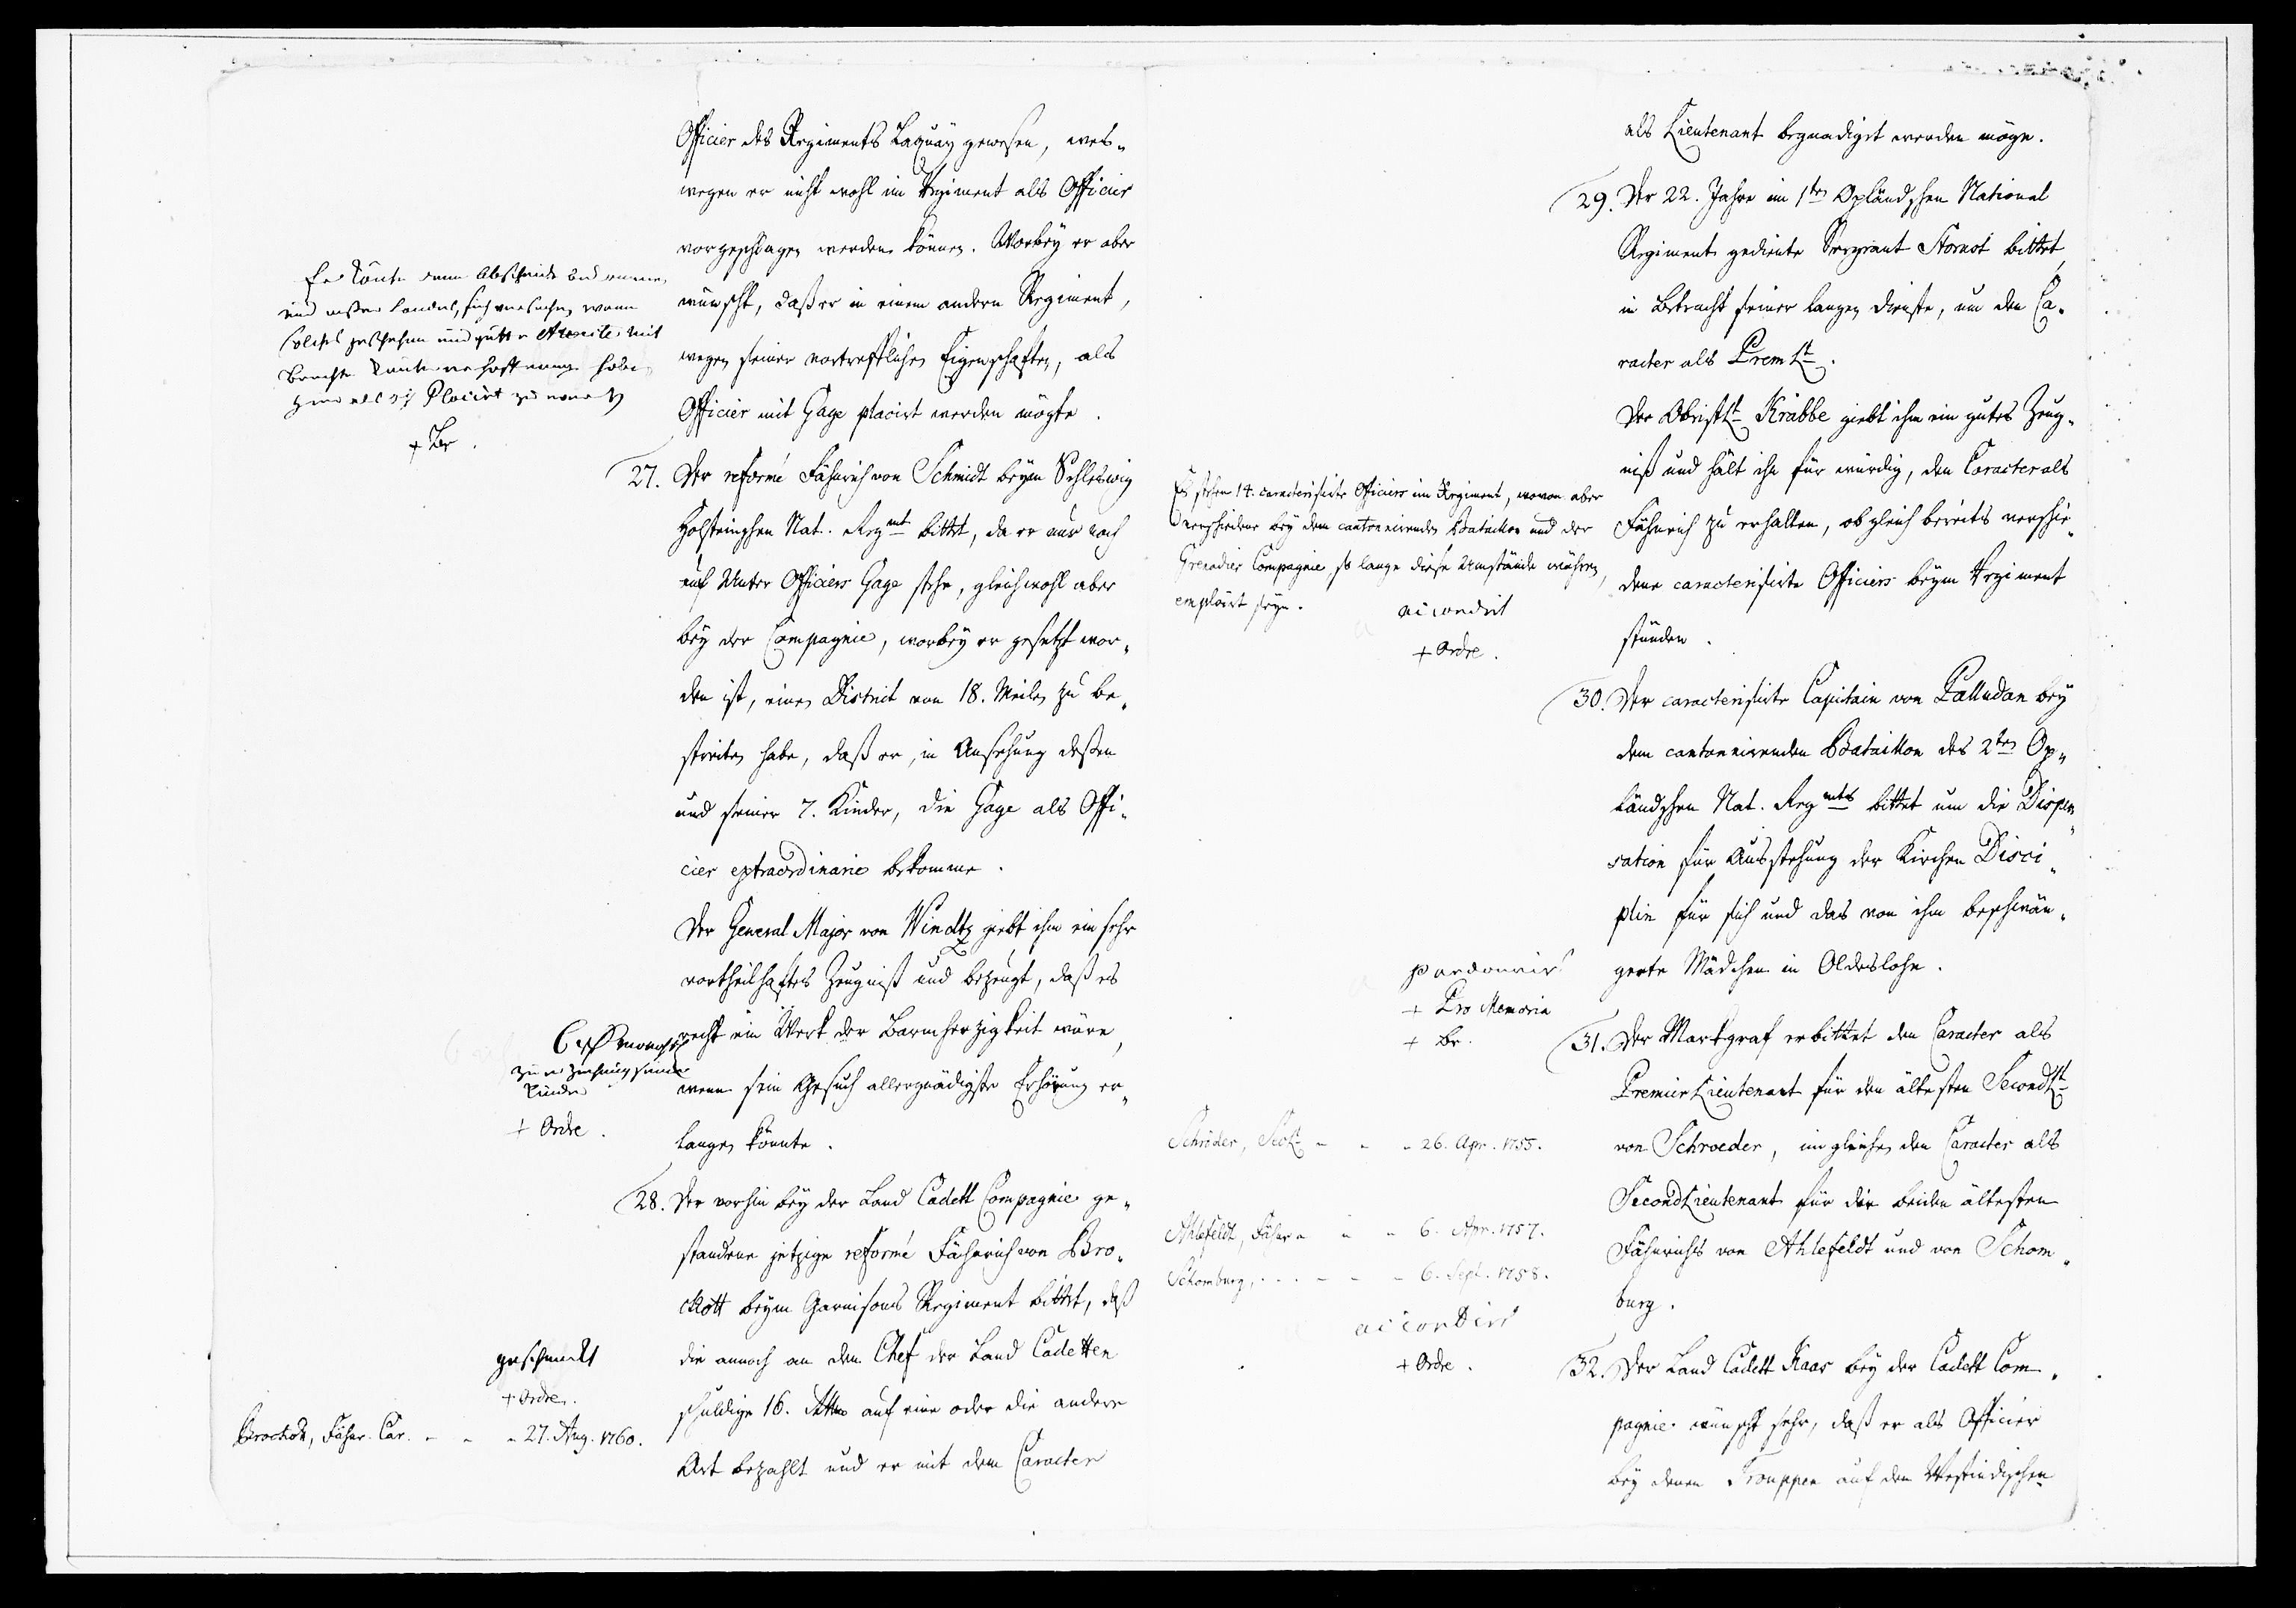 Officier des Regiments Laquay gewesen, wes-
wegen er nicht wohl im Regiment als Officier
vorgeschlagen werden können. Worbey er aber
wünscht, daß er in einem andern Regiment,
wegen seiner vortrefflichen Eigenschafften, als
Officier mit Gage placirt werden mögte.
Er könte
solches geschehen und gutte Atteste mit
Hoffnung haben
Placirt zu werden
+ Br.
27. Der reformé Fähnrich von Schmidt beym Schleswig
Holsteinschen Nat. Regmt bittet, da er nur noch
auf Unter Officiers Gage stehe, gleichwohl aber
bey der Compagnie, worbey er gesetzt wor-
den ist, einen District von 18. Meilen zu be-
streiten habe, daß er, in Ansehung deßen
und seiner 7. Kinder, die Gage als Offi-
cier extraordinaire bekomme.
Der General Major von Windtz giebt ihm ein sehr
vortheilhaftes Zeugniß und bezeugt, daß es
recht ein Werk der Barmherzigkeit wäre,
wenn sein Gesuch allergnädigste Erhörung er-
langen könnte.
zur erziehung seiner
Kinder
+ Ordre.
28. Der vorhin bey der Land Cadett Compagnie ge-
standene jetzige reformé Fähnrich von Bro-
ckott beym Garnisons Regiment bittet, daß
die annoch an dem Chef der Land Cadetten
schuldige 16. Rthlr auf eine oder die andere
Art bezahlt und er mit dem Caracter
geschenckt
+ Ordre.
Brockott, Fähnr. Car. - - - 27. Aug. 1760.
als Lieutenant begnadiget werden möge.
29. Der 22. Jahre im 1ten Opländschen National
Regiment gediente Sergeant Stornot bittet,
in Betracht seiner langen Dienste, um den Ca-
racter als PremLt.
Der ObristLt Krabbe giebt ihm ein gutes Zeug-
niß und hält ihn für würdig, den Caracter als
Fähnrich zu erhalten, obgleich bereits verschie-
dene caracterisirte Officiers beym Regiment
stünden.
Es stehen 14. caracterisirte Officiers im Regiment, wovon aber
verschiedene bey dem cantonnirenden Bataillon und der
Grenadier Compagnie, so lange diese Umstände währen,
emploirt seyn.
accordirt
+ Ordre.
30. Der caracterisirte Capitain von Palludan bey
dem cantonnirenden Bataillon des 2ten Op-
ländschen Nat. Regmts bittet um die Dispen-
sation für Ausstehung der Kirchen Disci-
plin für sich und das von ihm beschwän-
gerte Mädchen in Oldeslohe.
pardonnirt
+ Pro Memoria
+ Br.
31. Der Markgraf erbittet den Caracter als
Premier Lieutenant für den ältesten SecondLt
von Schroeder, imgleichen den Caracter als
SecondLieutenant für die beiden ältesten
Fähnrichs von Ahlefeldt und von Schom-
burg.
Schröder, SecLt - - - 26. Apr. 1755.
Ahlefeldt, Fähnr - - - 6. Apr. 1757.
Schomburg, - - - 6. Sept. 1758.
accordirt
+ Ordre.
32. Der Land Cadett Kaas bey der Cadett Com-
pagnie wünscht sehr, daß er als Officier
bey denen Trouppen auf den Westindischen